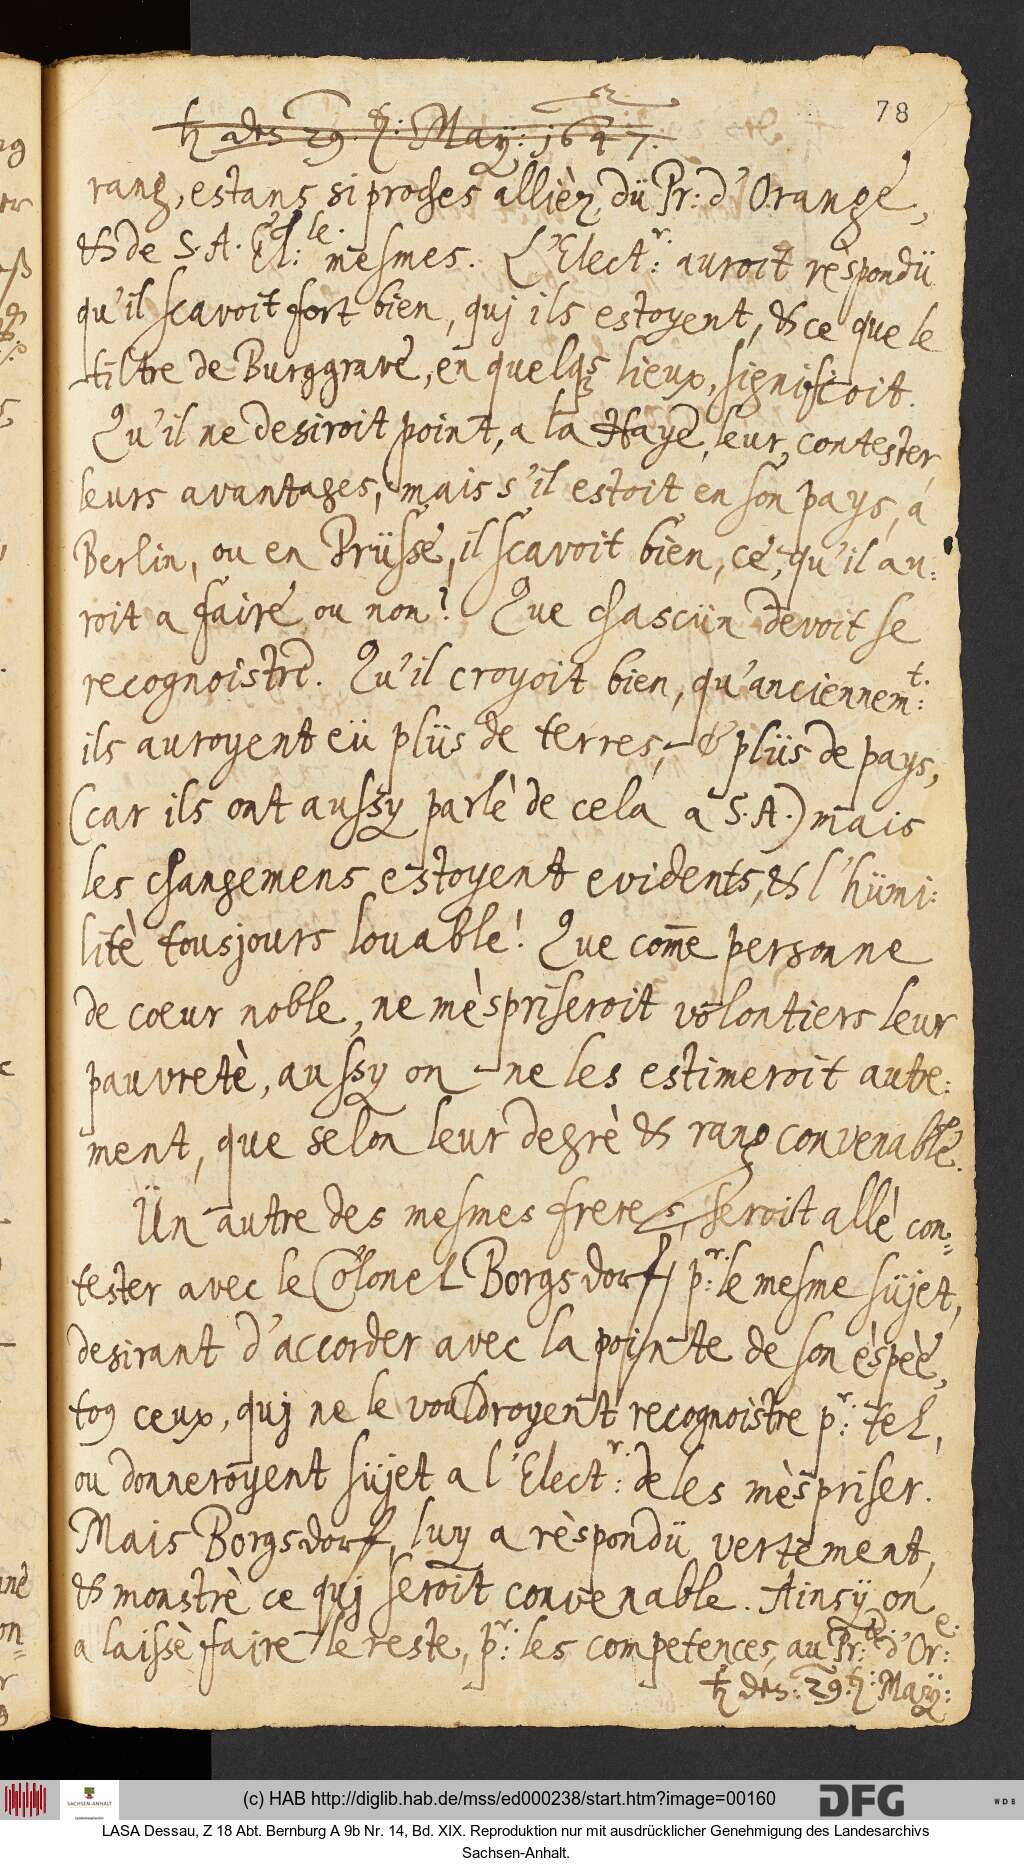 78
♄ des 29. ten: May: 1647.
rang, estans si proches allièz, dü Pr: d'Orange,
& de S. A. El:le. mesmes. L'Elect:r. auroit rèspondü
qu'il scavoit fort bien, quj ils estoyent, & ce que le
tiltre de Burggrave, en quelqs lieux, signifioit.
Qu'il ne desiroit point, a la Haye, leur, contester,
leurs avantages, mais s'il estoit en son pays, a
Berlin, ou en Prüsse, il scavoit bien, ce, qu'il au:
roit a faire ou non? Que chascün devoit se
recognoistre. Qu'il croyoit bien, qu'anciennem:t.
ils auroyent eü plüs de terres, & plüs de pays,
(car ils ont aussy parlè de cela a S. A.) mais
les changemens estoyent evidents, & l'hümi:
litè tousjours louable! Que com̄e personne
de coeur noble, ne mèspriseroit volontiers leur
pauvretè, aussy on ne les estimeroit autre:
ment, que selon leur degrè & rang convenable.
Ün autre des mesmes freres, seroit allè con:
tester avec le Colonel Borgsdorff p:r. le mesme süjet,
desirant d'accorder avec la pointe de son èspèe,
to9 ceux, quj ne le vouldroyent recognoistre p:r. tel,
ou donneroyent süjet a l'Elect:r. de les mèspriser.
Mais Borgsdorff, luy a rèspondü vertement,
& monstrè ce quj seroit convenable. Ainsÿ on
a laissè faire le reste, p:r. les competences, au Pr: d'Or:e.
♄ des: 29. ten: May:
(c) HAB http://diglib.hab.de/mss/ed000238/start.htm?image=00160
SACHSEN-ANHALT
DFG
WDB
LASA Dessau, Z 18 Abt. Bernburg A 9b Nr. 14, Bd. XIX. Reproduktion nur mit ausdrücklicher Genehmigung des Landesarchivs
Sachsen-Anhalt.